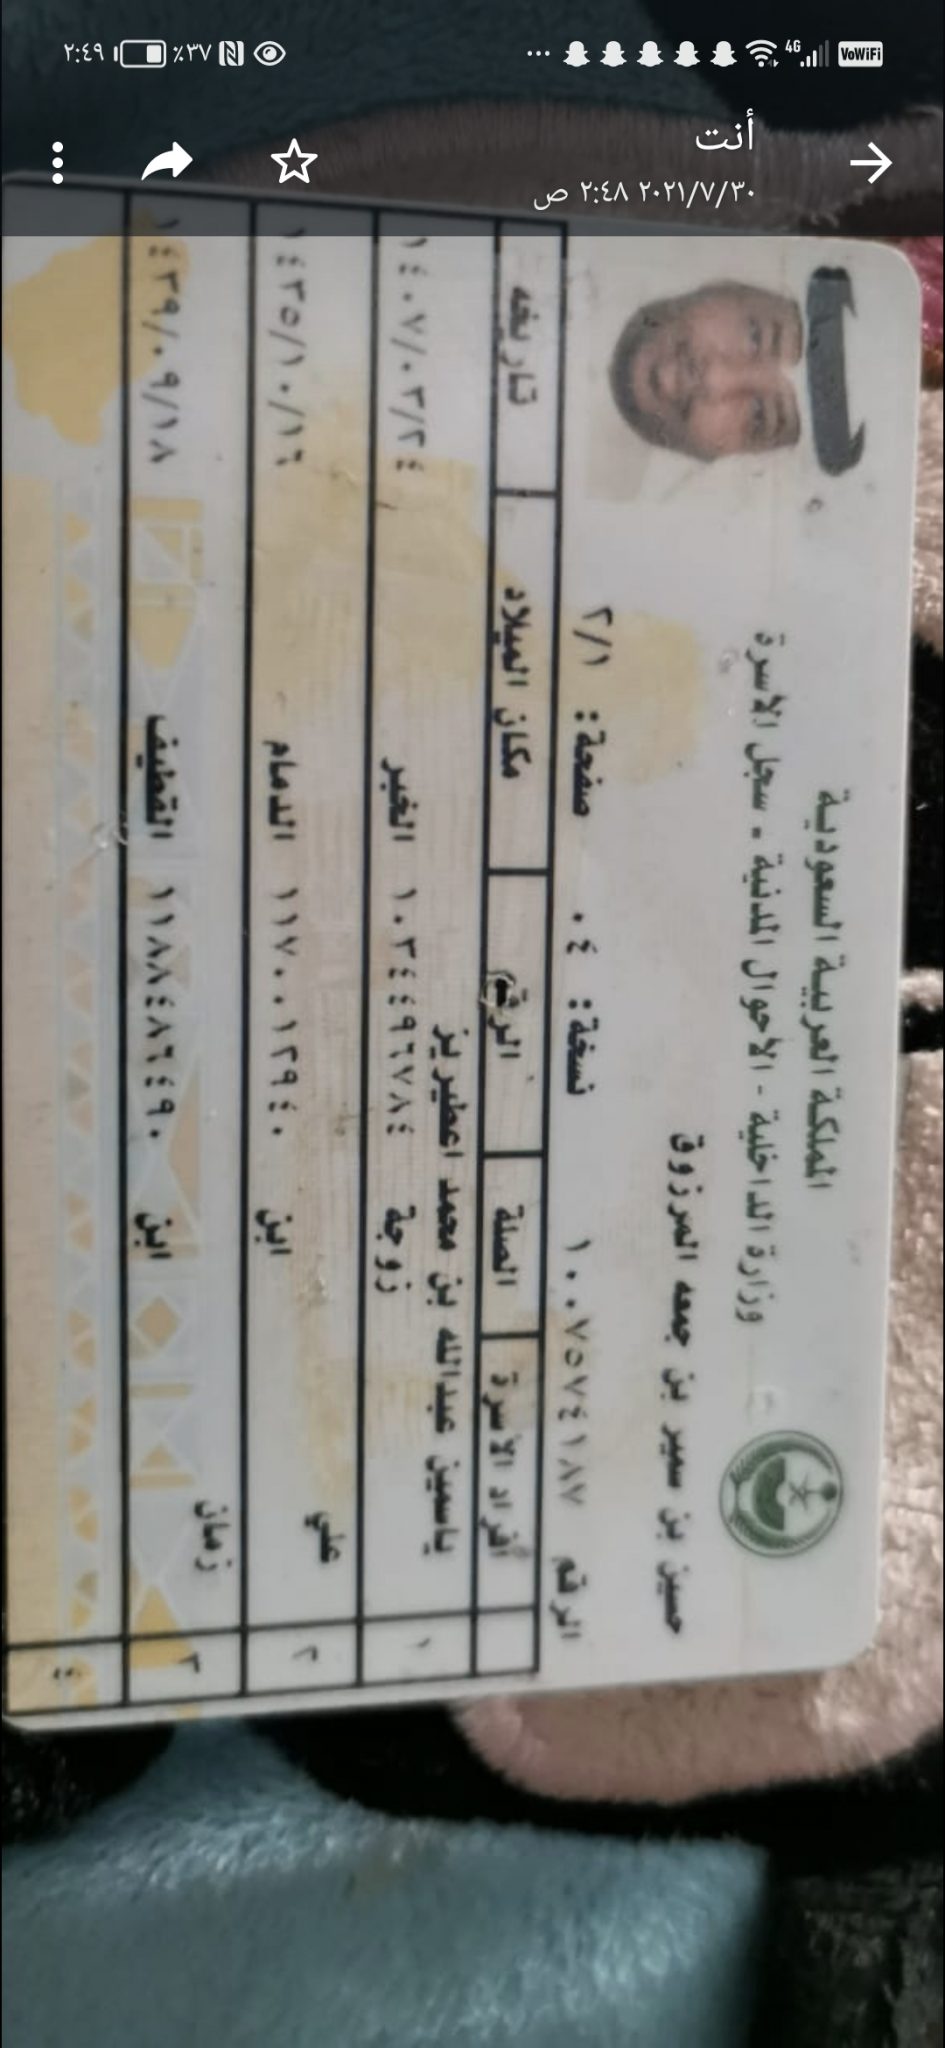 VoWiFi 4G ٪٣٧ ٢:٤٩
أنت
٢٠٢١/٧/٣٠ ٢:٤٨ ص
المملكة العربية السعودية
وزارة الداخلية - الأحوال المدنية - سجل الأسرة
حسين بن سمير بن جمعه المرزوق
الرقم ١٠٠٧٥٧٤١٨٧ نسخة: ٠٤ صفحة: ٢/١
أفراد الأسرة الصلة الرقم مكان الميلاد تاريخه
١ ياسمين عبدالله بن محمد اعطيريز
زوجة ١٠٣٤٤٩٦٧٨٤ الخبر ١٤٠٧/٠٣/٢٤
٢ علي
ابن ١١٧٠٠١٢٩٤٠ الدمام ١٤٣٥/١٠/١٦
٣ زمان
ابن ١١٨٨٤٨٦٤٩٠ القطيف ١٤٣٩/٠٩/١٨
٤